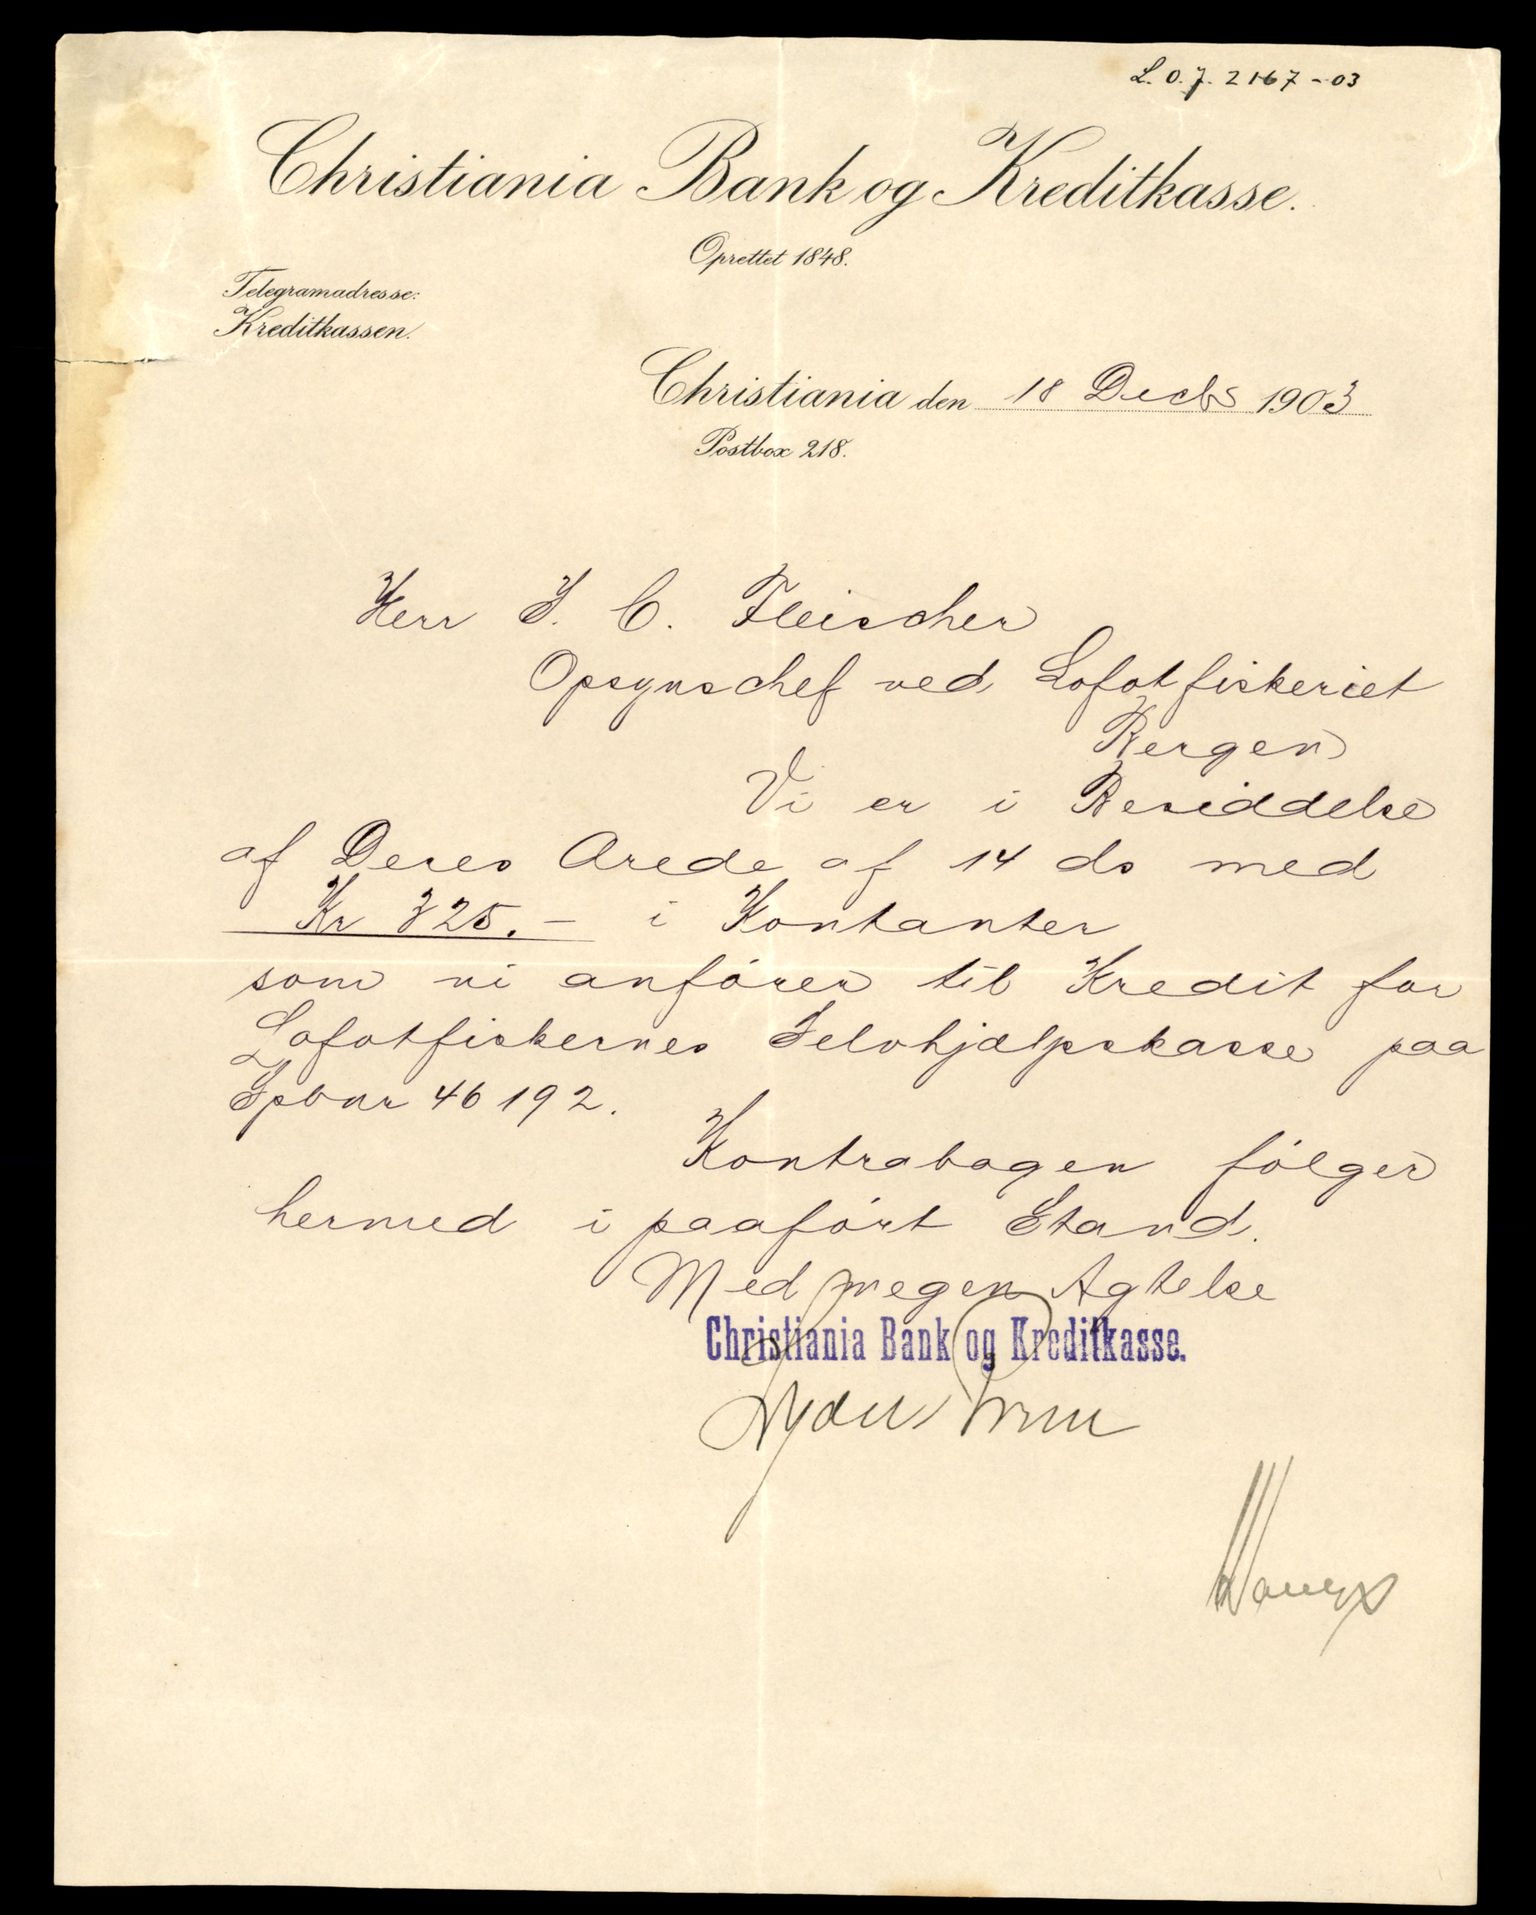 L. O. J. 2167-03
Christiania Bank og Kreditkasse.
Oprettet 1848.
Telegramadresse:
Kreditkassen.
Christiania den 18 Decbr 1903
Postbox 218.
Herr J. C. Fleischer
Opsynschef ved Lofotfiskeriet
Bergen
Vi er i Besiddelse
af Deres Ærede af 14 ds med
Kr 325.- i Kontanter
som vi anfører til Kredit for
Lofotfiskernes Selvhjælpskasse paa
Spbnr 46192.
Kontrabogen følger
hermed i paaført Stand.
Med megen Agtelse
Christiania Bank og Kreditkasse.